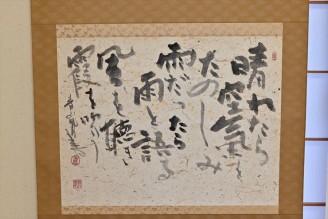 晴れたら
空氣を
たのしみ
雨だったら
雨と語る
風を聴き
霞を